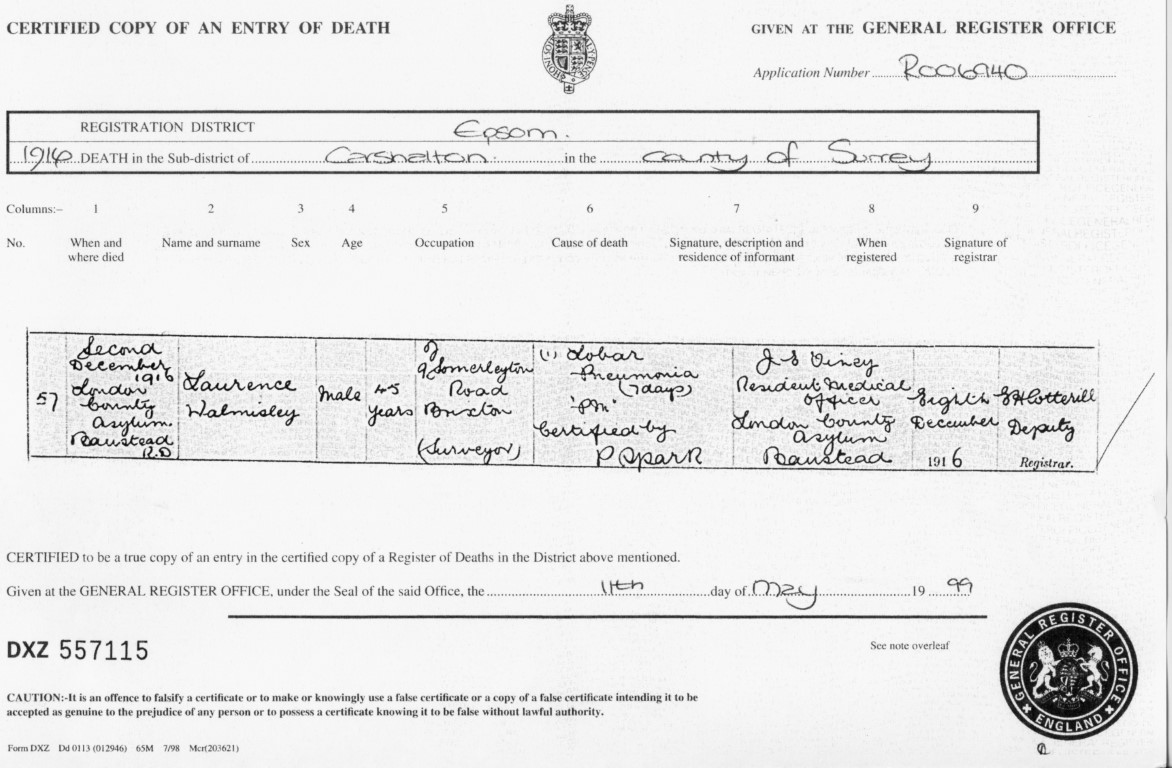 CERTIFIED COPY OF AN ENTRY OF DEATH
GIVEN AT THE GENERAL REGISTER OFFICE
Application Number R006940
REGISTRATION DISTRICT Epsom.
1916 DEATH in the Sub-district of Carshalton. in the County of Surrey
Columns:– 1 2 3 4 5 6 7 8 9
No. When and where died Name and surname Sex Age Occupation Cause of death Signature, description and residence of informant When registered Signature of registrar
57
Second
December
1916
London
County
Asylum
Banstead
R.D
Laurence
Walmisley
Male
45
years
of
9 Somerleyton
Road
Brixton
(Surveyor)
(1) Lobar
Pneumonia
(7days)
'PM'
Certified by
P Spark
J S Viney
Resident Medical
Officer
London County
Asylum
Banstead
Eighth
December
1916
Cotterill
Deputy
Registrar.
CERTIFIED to be a true copy of an entry in the certified copy of a Register of Deaths in the District above mentioned.
Given at the GENERAL REGISTER OFFICE, under the Seal of the said Office, the 11th day of May 1999
DXZ 557115
See note overleaf
CAUTION:-It is an offence to falsify a certificate or to make or knowingly use a false certificate or a copy of a false certificate intending it to be
accepted as genuine to the prejudice of any person or to possess a certificate knowing it to be false without lawful authority.
Form DXZ Dd 0113 (012946) 65M 7/98 Mcr(203621)
GENERAL REGISTER OFFICE
ENGLAND